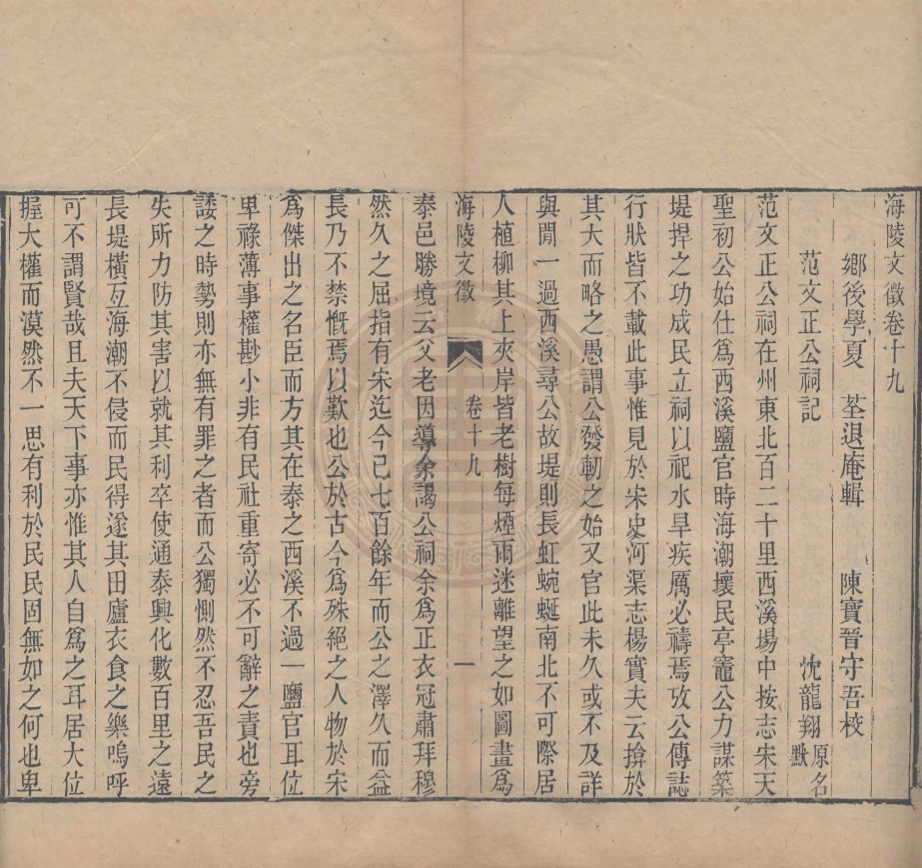 海陵文徵卷十九
鄉後學夏荃退庵輯　陳寶晉守吾校
范文正公祠記　沈龍翔原名默
范文正公祠在州東北百二十里西溪場中按志宋天
聖初公始仕爲西溪鹽官時海潮壞民亭竈公力謀築
堤捍之功成民立祠以祀水旱疾厲必禱焉攷公傳誌
行狀皆不載此事惟見於宋史河渠志楊實夫云揜於
其大而略之愚謂公發軔之始又官此未久或不及詳
與閒一過西溪尋公故堤則長虹蜿蜒南北不可際居
人植柳其上夾岸皆老樹每煙雨迷離望之如圖畫爲
海陵文徵　卷十九　一
泰邑勝境云父老因導余謁公祠余爲正衣冠肅拜穆
然久之屈指有宋迄今已七百餘年而公之澤久而益
長乃不禁慨焉以歎也公於古今爲殊絕之人物於宋
爲傑出之名臣而方其在泰之西溪不過一鹽官耳位
卑祿薄事權尠小非有民社重寄必不可辭之責也旁
諉之時勢則亦無有罪之者而公獨惻然不忍吾民之
失所力防其害以就其利卒使通泰興化數百里之遠
長堤橫亙海潮不侵而民得遂其田廬衣食之樂嗚呼
可不謂賢哉且夫天下事亦惟其人自爲之耳居大位
握大權而漠然不一思有利於民民固無如之何也卑